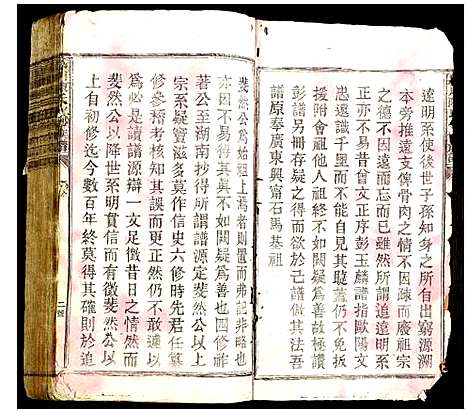 遠明系使後世子孫知身之所自出窮源溯
本旁推遠支俾骨肉之情不因疎而廢祖宗
之德不因遠而忘也雖然所謂追遠者
正亦不易昔曾文正序彭玉麟譜指歐陽文
忠遠識千里而不能自見其睫蓋仍不免扳
附祖會他人祖終不如闕疑爲善故極讚
彭譜另冊存疑之得但我於己譜倣其法吾
譜原奉廣東興甯石馬基祖
斐然公爲始祖上焉者則置而弗記非略也
亦因不易得其真不如闕疑爲善也四修祚
著公至湖南抄得所謂譜源定斐然公以上
宗系疑竇滋多莫作信史六修時先君任纂
修參稽知其誤而更正然仍不敢遽以
爲必是讀譜源辯一文足徵昔日之情然而
斐然公以降世系明貫信而有徵斐然公以
上自初修迄今數百年終莫得其確則於追
二